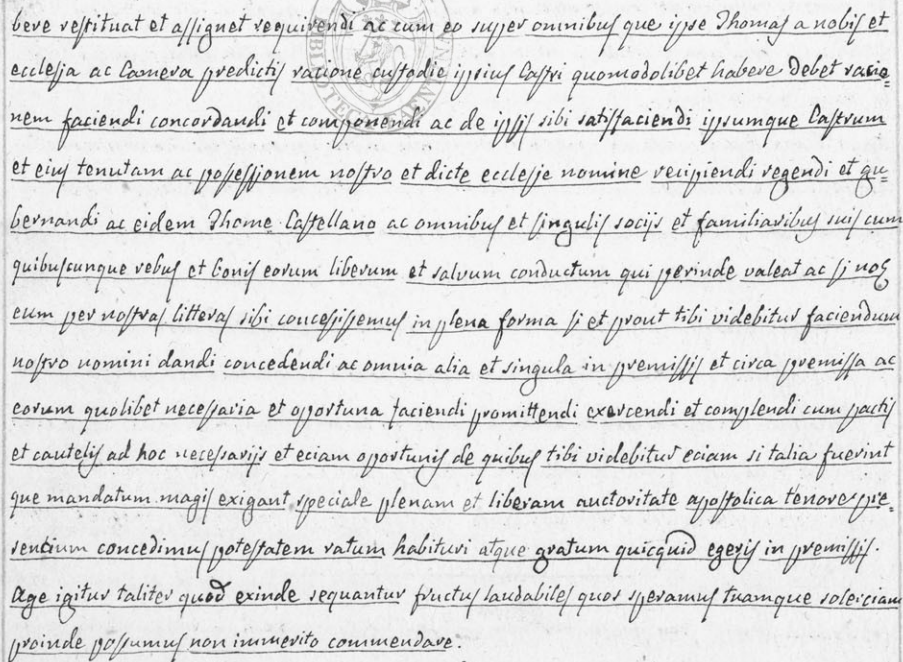 bere restituat et assignet requirendi ac cum eo super omnibus que ipse Thomas a nobis et
ecclesia ac Camera predictis racione custodie ipsius Castri quomodolibet habere debet racio=
nem faciendi concordandi et componendi ac de ipsis sibi satisfaciendi ipsumque Castrum
et eius tenutam ac possessionem nostro et dicte ecclesie nomine recipiendi regendi et gu=
bernandi ac eidem Thome Castellano ac omnibus et singulis socijs et familiaribus suis cum
quibuscunque rebus et bonis eorum liberum et salvum conductum qui perinde valeat ac si nos
eum per nostras litteras sibi concessissemus in plena forma si et prout tibi videbitur faciendum
nostro nomini dandi concedendi ac omnia alia et singula in premissis et circa premissa ac
eorum quolibet necessaria et oportuna faciendi promittendi exercendi et complendi cum pactis
et cautelis ad hoc necessarijs et eciam oportunis de quibus tibi videbitur eciam si talia fuerint
que mandatum magis exigant speciale plenam et liberam auctoritate apostolica tenore pre=
sencium concedimus potestatem ratum habituri atque gratum quicquid egeris in premissis.
Age igitur taliter quod exinde sequantur fructus laudabiles quos speramus tuamque solerciam
proinde possumus non immerito commendare.